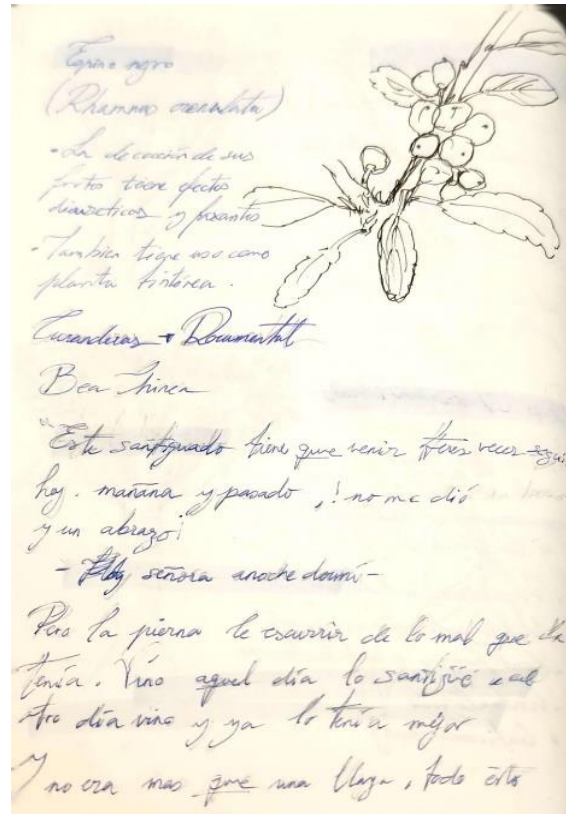 Espino negro
(Rhamnus crenulata)
- La decocción de sus
frutos tiene efectos
diureticos y
- Tambien tiene uso como
planta tintórea.
Curanderas + Documental
Bea
"Este santiguado tiene que venir tres veces
hoy. mañana y pasado, ! no me dió
y un abrazo!
- señora anoche dormí -
Pero la pierna le escurrir de lo mal que la
tenía. Vino aquel día lo santigüé al
otro día vino y ya lo tenía mejor
Y no era mas que una llaga, todo esto